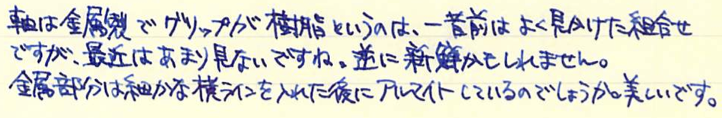 軸は金属製でグリップが樹脂というのは、一昔前はよく見かけた組合せ
ですが、最近はあまり見ないですね。逆に新鮮かもしれません。
金属部分は細かな横ラインを入れた後にアルマイトしているのでしょうか。美しいです。